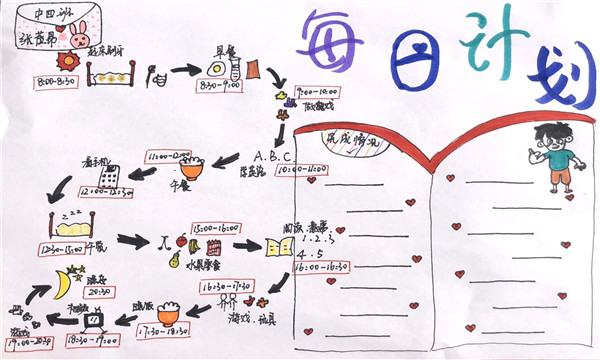 中四班
每日计划
8:00-8:30
起床刷牙
早餐
8:30-9:00
9:00-10:00
做游戏
A.B.C.
10:00-11:00
11:00-12:00
午餐
看手机
12:00-12:30
12:30-15:00 午睡
z z z
15:00-16:00
水果零食
阅读
1.2.3
4.5
16:00-16:30
16:30-17:30
游戏.玩具
晚饭
17:30-18:30
18:30-19:00
游戏
19:00-20:30
睡觉
20:30
完成情况